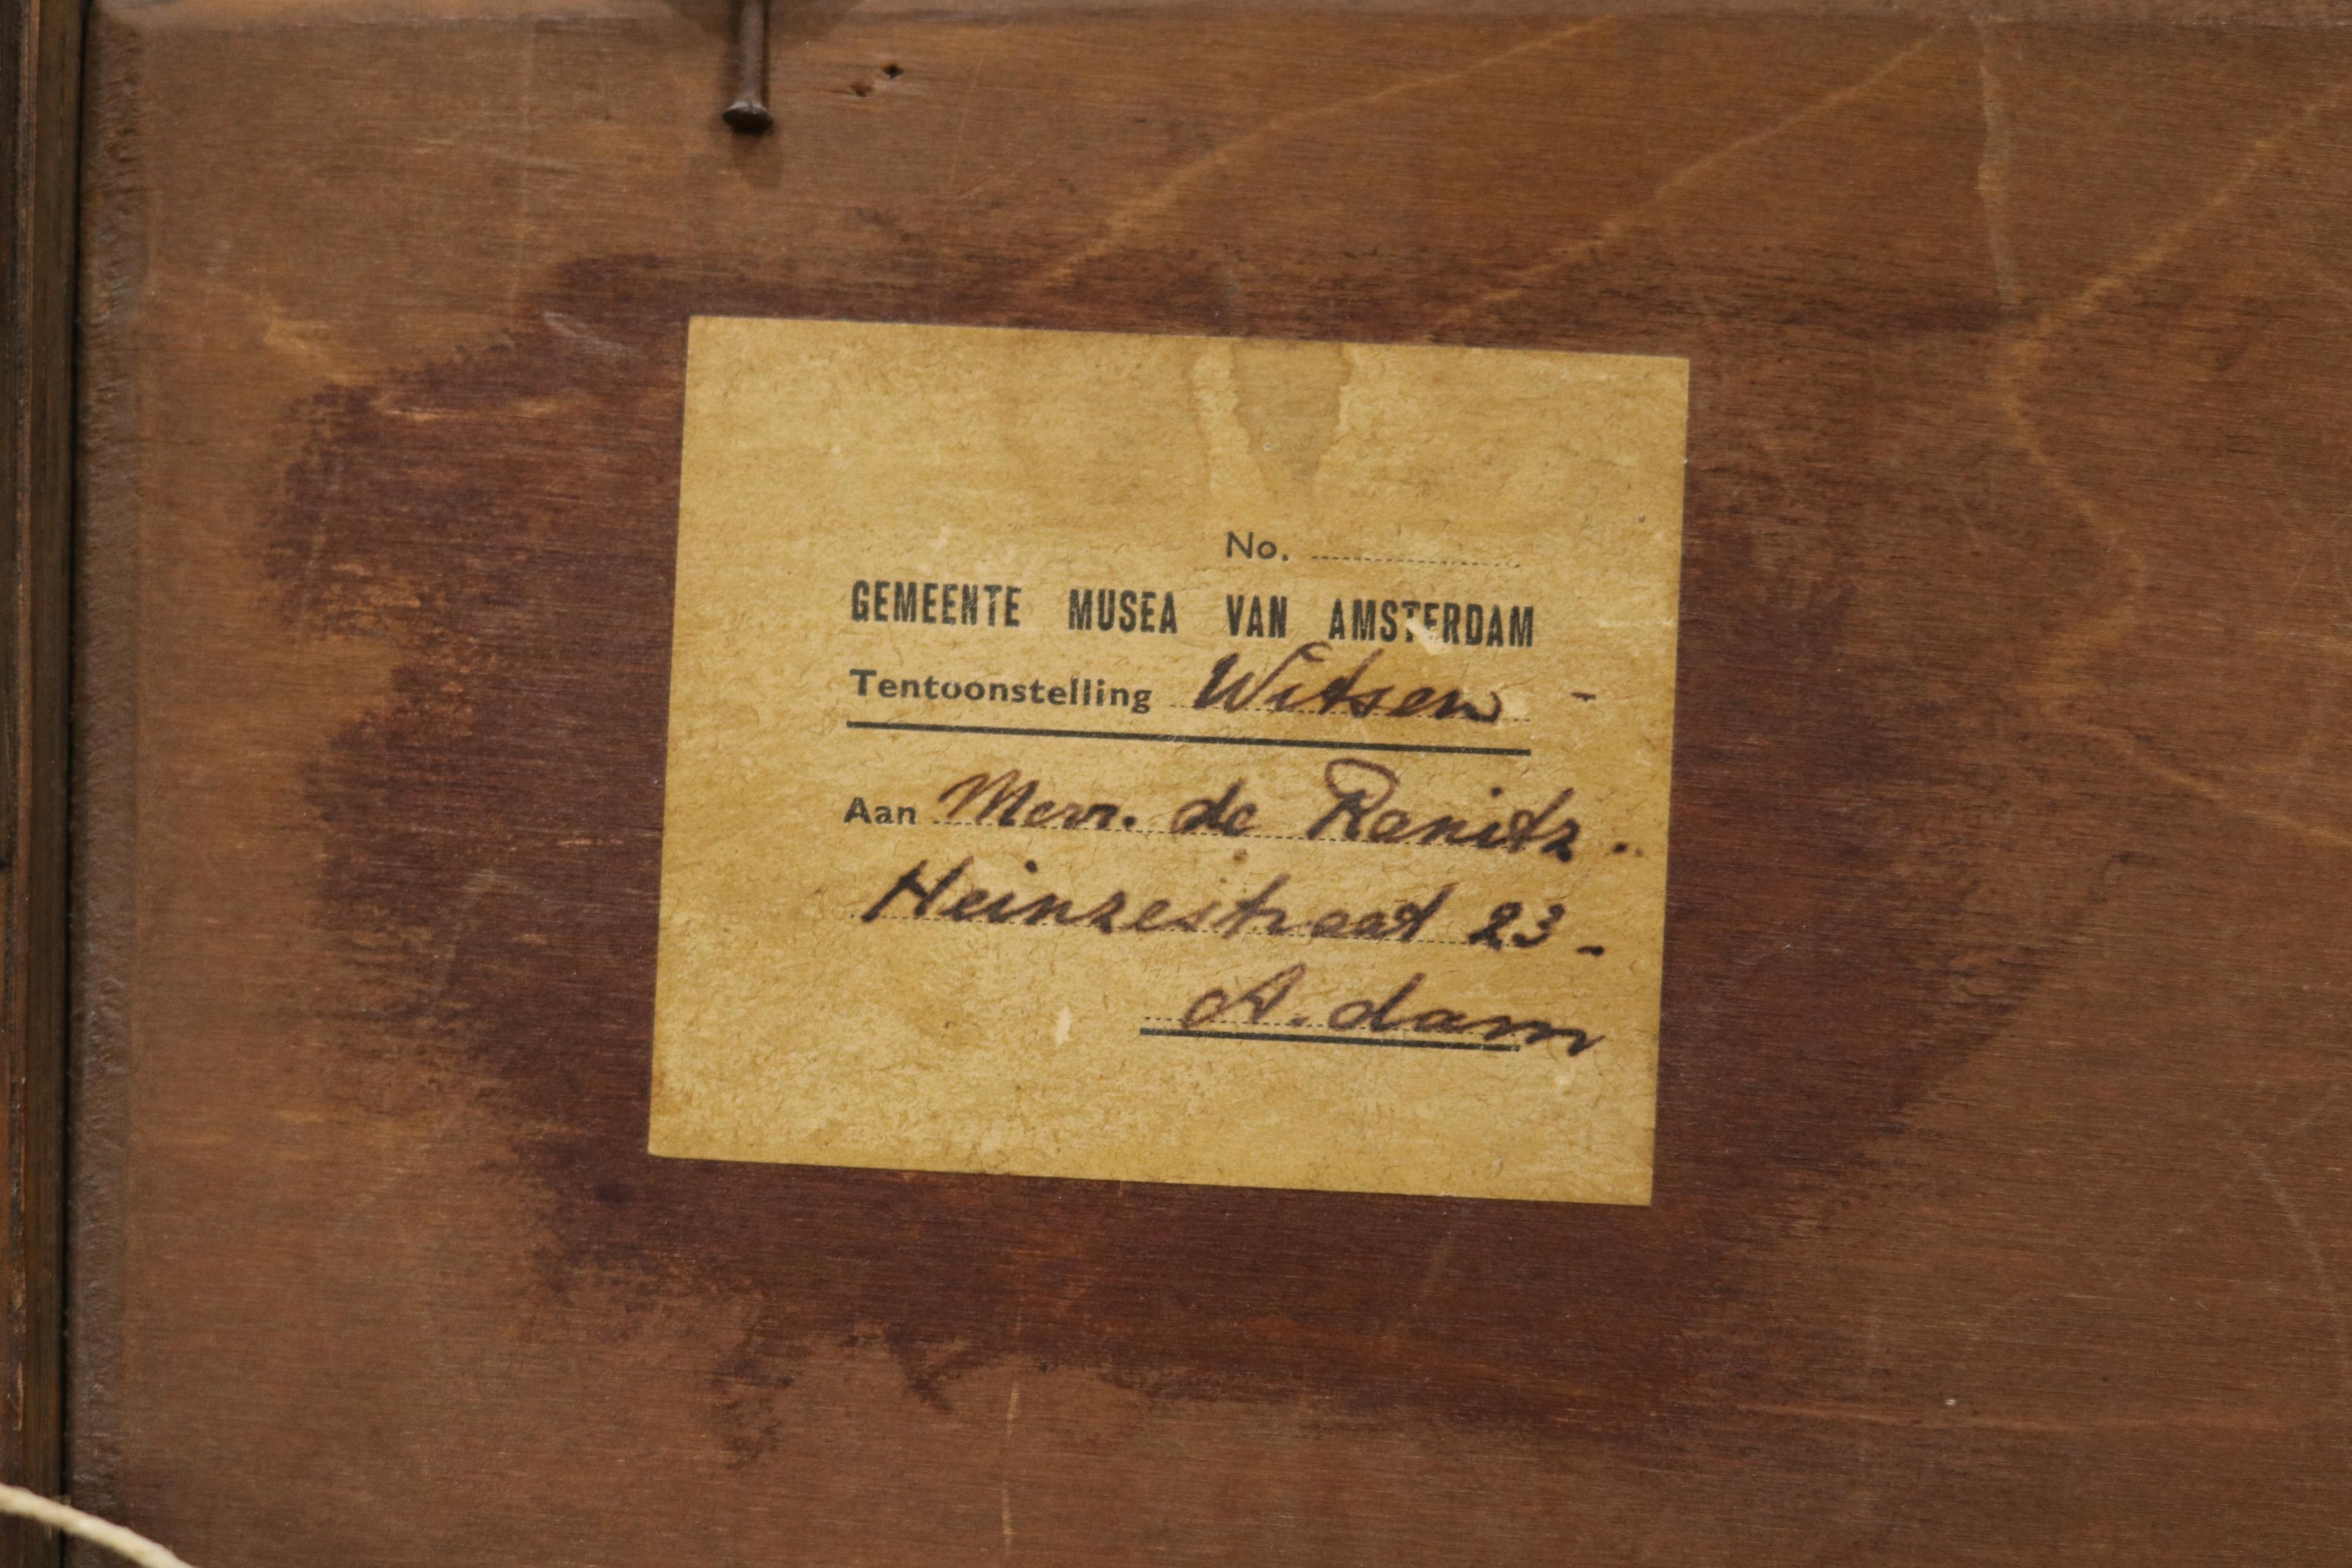 No.
GEMEENTE MUSEA VAN AMSTERDAM
Tentoonstelling Witsen -
Aan Mevr. de Ranitz.
Heinzestraat 23 -
A.dam